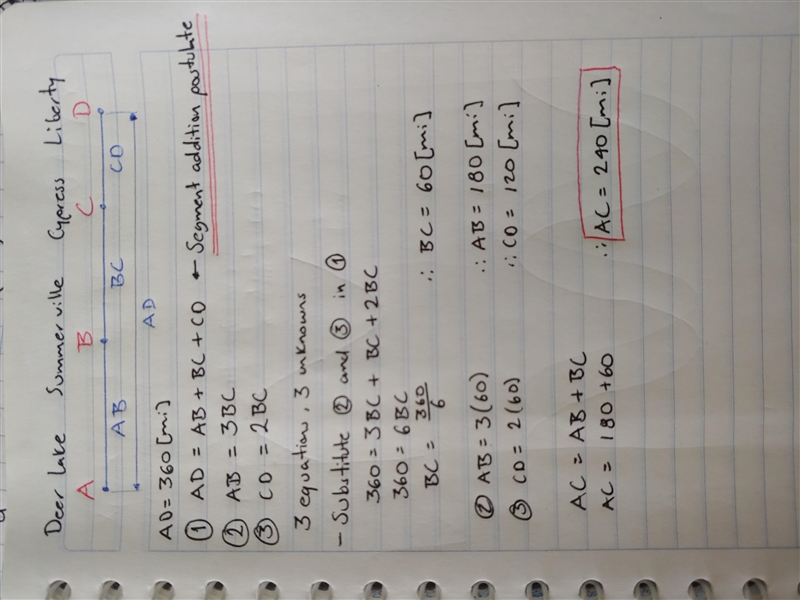 Deer Lake Summerville Cypress Liberty
A B C D
AB BC CD
AD
AD = 360 [mi]
① AD = AB + BC + CD ← Segment addition postulate
② AB = 3BC
③ CD = 2BC
3 equations, 3 unknowns
- Substitute ② and ③ in ①
360 = 3BC + BC + 2BC
360 = 6BC
BC = 360/6 ∴ BC = 60 [mi]
② AB = 3(60) ∴ AB = 180 [mi]
③ CD = 2(60) ∴ CD = 120 [mi]
AC = AB + BC
AC = 180 + 60 ∴ AC = 240 [mi]